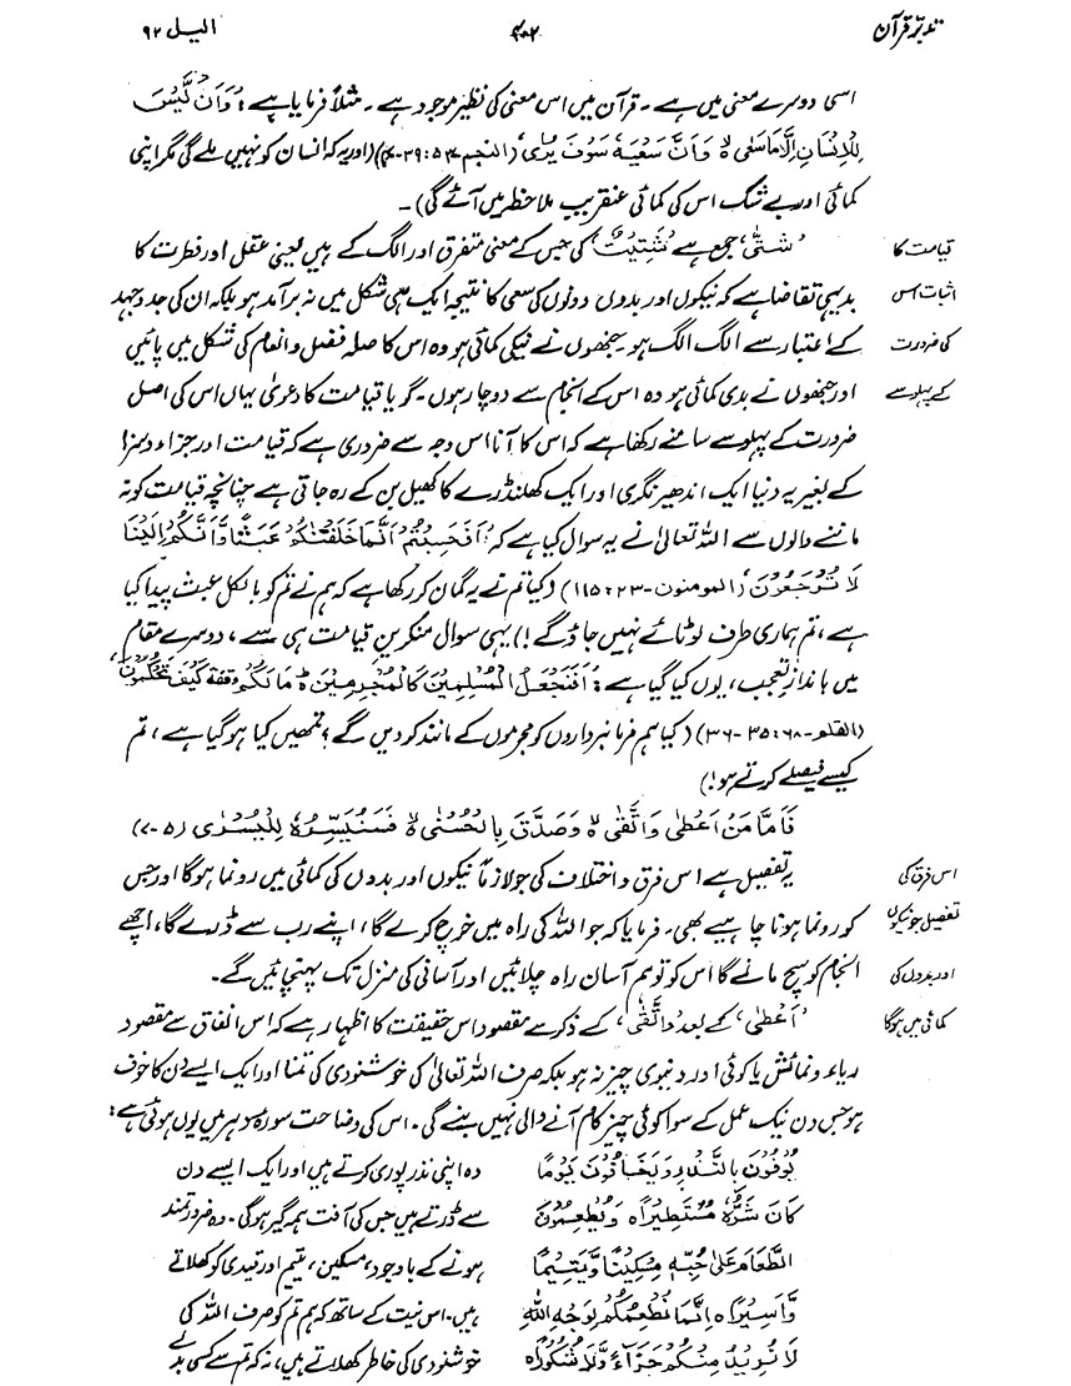 تدبّرِ قرآن ۴۰۲ الیل ۹۲
اسی دوسرے معنی میں ہے۔ قرآن میں اس معنی کی نظیر موجود ہے۔ مثلاً فرمایا ہے: وَاَنْ لَّيْسَ
لِلْاِنْسَانِ اِلَّا مَا سَعٰى ۙ وَاَنَّ سَعْيَهٗ سَوْفَ يُرٰى، (النجم-۵۳: ۳۹-۴۰) (اور یہ کہ انسان کو نہیں ملے گی مگر اپنی
کمائی اور بے شک اس کی کمائی عنقریب ملاحظہ میں آئے گی)۔
قیامت کا 'شَتّٰى' جمع ہے 'شَتِيْتٌ' کی جس کے معنی متفرق اور الگ کے ہیں یعنی عقل اور فطرت کا
اثبات اس بدیہی تقاضا ہے کہ نیکوں اور بدوں دونوں کی سعی کا نتیجہ ایک ہی شکل میں نہ برآمد ہو بلکہ ان کی جدوجہد
کی ضرورت کے اعتبار سے الگ الگ ہو۔ جنھوں نے نیکی کمائی ہو وہ اس کا صلہ فضل و انعام کی شکل میں پائیں
کے پہلو سے اور جنھوں نے بدی کمائی ہو وہ اس کے انجام سے دوچار ہوں۔ گویا قیامت کا دعویٰ یہاں اس کی اصل
ضرورت کے پہلو سے سامنے رکھا ہے کہ اس کا آنا اس وجہ سے ضروری ہے کہ قیامت اور جزاء و سزا
کے بغیر یہ دنیا ایک اندھیر نگری اور ایک کھلنڈرے کا کھیل بن کے رہ جاتی ہے چنانچہ قیامت کو نہ
ماننے والوں سے اللہ تعالیٰ نے یہ سوال کیا ہے کہ: اَفَحَسِبْتُمْ اَنَّمَا خَلَقْنٰكُمْ عَبَثًا وَّاَنَّكُمْ اِلَيْنَا
لَا تُرْجَعُوْنَ، (المومنون-۲۳: ۱۱۵) (کیا تم نے یہ گمان کر رکھا ہے کہ ہم نے تم کو بالکل عبث پیدا کیا
ہے، تم ہماری طرف لوٹائے نہیں جاؤ گے!) یہی سوال منکرینِ قیامت ہی سے، دوسرے مقام
میں باندازِ تعجب، یوں کیا گیا ہے: اَفَنَجْعَلُ الْمُسْلِمِيْنَ كَالْمُجْرِمِيْنَ ؕ مَا لَكُمْ وقفة كَيْفَ تَحْكُمُوْنَ،
(القلم-۶۸: ۳۵-۳۶) (کیا ہم فرمانبرداروں کو مجرموں کے مانند کر دیں گے؟ تمھیں کیا ہو گیا ہے، تم
کیسے فیصلے کرتے ہو!)
فَاَمَّا مَنْ اَعْطٰى وَاتَّقٰى ۙ وَصَدَّقَ بِالْحُسْنٰى ۙ فَسَنُيَسِّرُهٗ لِلْيُسْرٰى (۵-۷)
اس فرق کی یہ تفصیل ہے اس فرق و اختلاف کی جو لازماً نیکوں اور بدوں کی کمائی میں رونما ہوگا اور جس
تفصیل جو نیکوں کو رونما ہونا چاہیے بھی۔ فرمایا کہ جو اللہ کی راہ میں خرچ کرے گا، اپنے رب سے ڈرے گا، اچھے
اور بدوں کی انجام کو سچ مانے گا اس کو تو ہم آسان راہ چلائیں اور آسانی کی منزل تک پہنچائیں گے۔
کمائی میں ہوگا 'اَعْطٰى' کے بعد 'وَاتَّقٰى' کے ذکر سے مقصود اس حقیقت کا اظہار ہے کہ اس انفاق سے مقصود
ریاء و نمائش یا کوئی اور دنیوی چیز نہ ہو بلکہ صرف اللہ تعالیٰ کی خوشنودی کی تمنا اور ایک ایسے دن کا خوف
ہو جس دن نیک عمل کے سوا کوئی چیز کام آنے والی نہیں بنے گی۔ اس کی وضاحت سورۂ دہر میں یوں ہوئی ہے:
يُوْفُوْنَ بِالنَّذْرِ وَيَخَافُوْنَ يَوْمًا وہ اپنی نذر پوری کرتے ہیں اور ایک ایسے دن
كَانَ شَرُّهٗ مُسْتَطِيْرًا ہ وَيُطْعِمُوْنَ سے ڈرتے ہیں جس کی آفت ہمہ گیر ہوگی۔ وہ ضرورتمند
الطَّعَامَ عَلٰى حُبِّهٖ مِسْكِيْنًا وَّيَتِيْمًا ہونے کے باوجود، مسکین، یتیم اور قیدی کو کھلاتے
وَّاَسِيْرًا ہ اِنَّمَا نُطْعِمُكُمْ لِوَجْهِ اللّٰهِ ہیں۔ اس نیت کے ساتھ کہ ہم تم کو صرف اللہ کی
لَا نُرِيْدُ مِنْكُمْ جَزَآءً وَّلَا شُكُوْرًا ہ خوشنودی کی خاطر کھلاتے ہیں، نہ کہ تم سے کسی بدلے